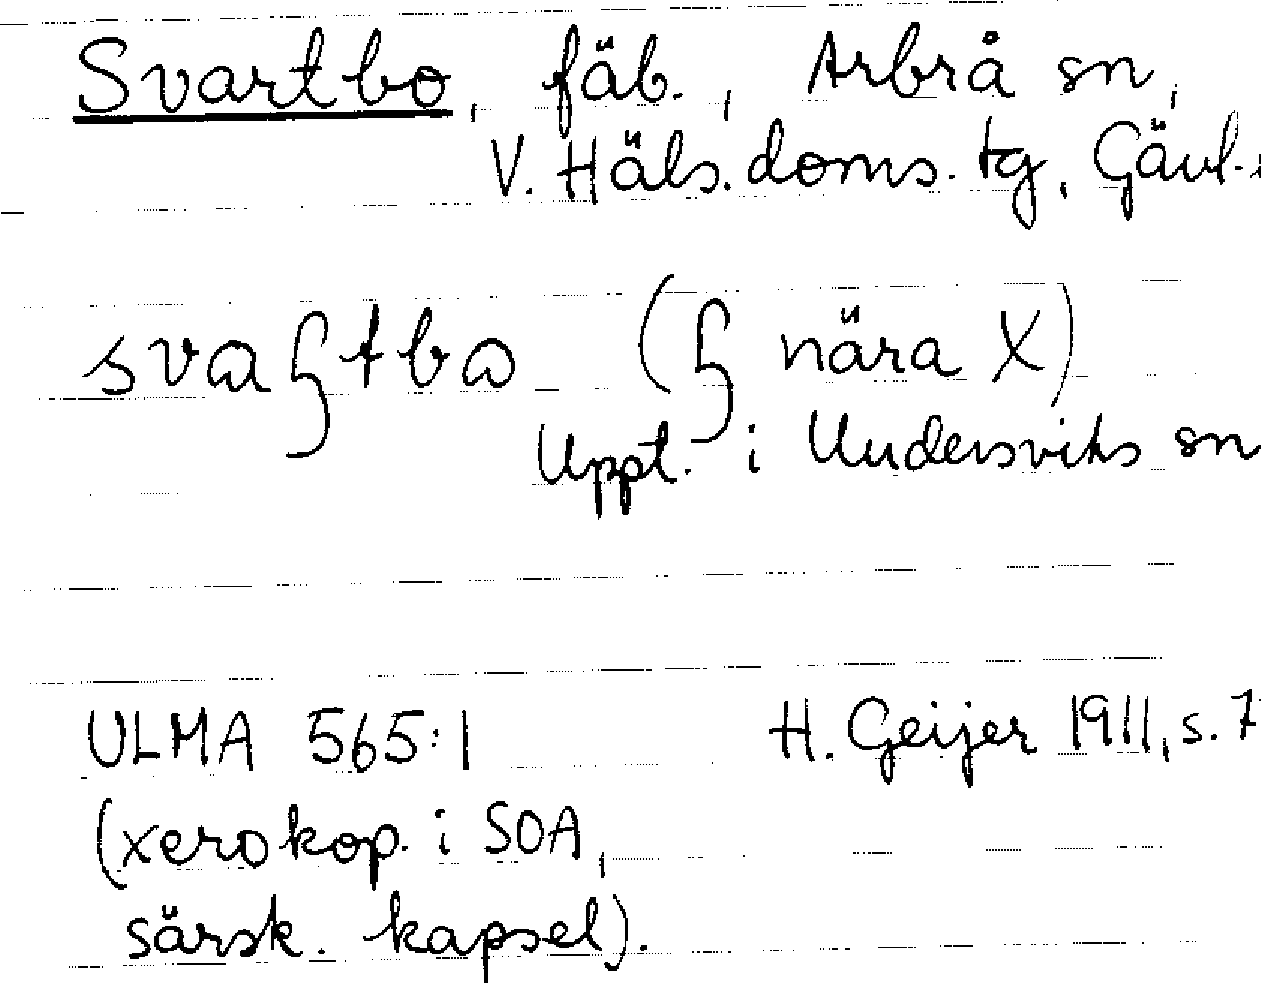 Svartbo, fäb., Arbrå sn,
V. Häls. doms. tg, Gävl.
svaɧtbo (ɧ nära X)
Uppt. i Undersviks sn
ULMA 565:1 H. Geijer 1911, s. 7
(xerokop. i SOA,
särsk. kapsel).